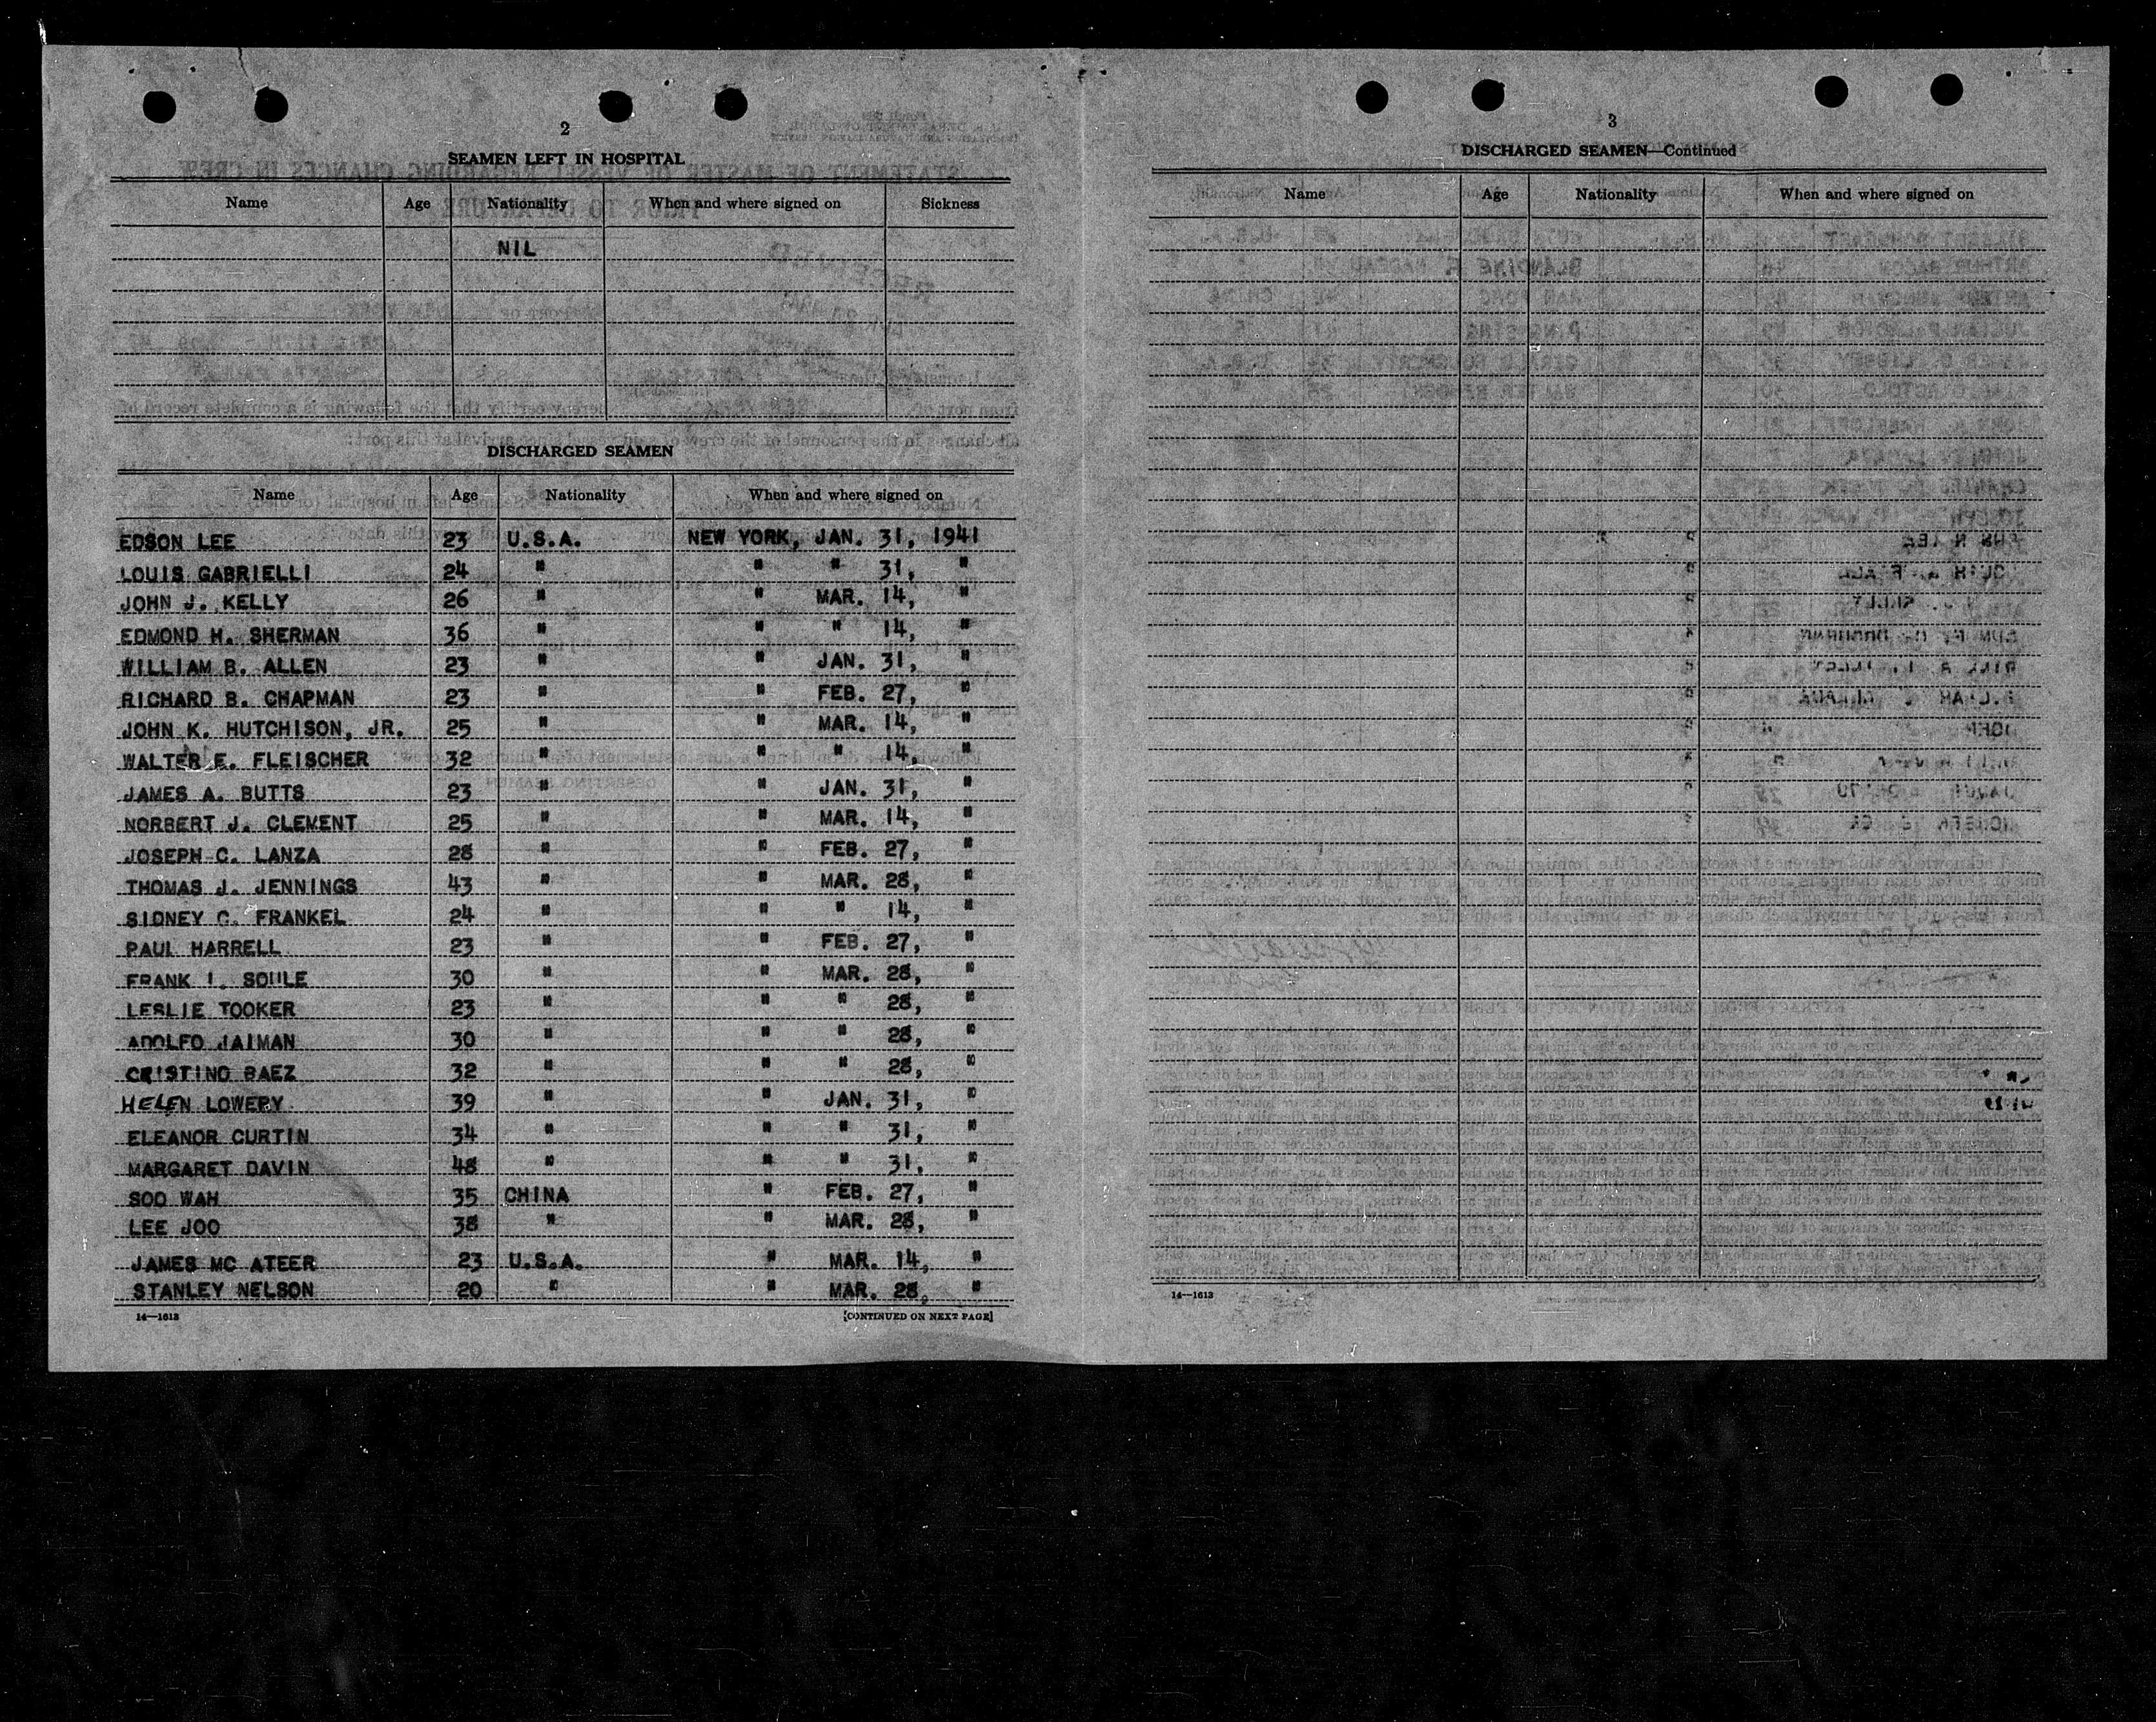 2
SEAMEN LEFT IN HOSPITAL
Name Age Nationality When and where signed on Sickness
NIL
DISCHARGED SEAMEN
Name Age Nationality When and where signed on
EDSON LEE 23 U.S.A. NEW YORK, JAN. 31, 1941
LOUIS GABRIELLI 24 " " " 31, "
JOHN J. KELLY 26 " " MAR. 14, "
EDMOND H. SHERMAN 36 " " " 14, "
WILLIAM B. ALLEN 23 " " JAN. 31, "
RICHARD B. CHAPMAN 23 " " FEB. 27, "
JOHN K. HUTCHISON, JR. 25 " " MAR. 14, "
WALTER E. FLEISCHER 32 " " " 14, "
JAMES A. BUTTS 23 " " JAN. 31, "
NORBERT J. CLEMENT 25 " " MAR. 14, "
JOSEPH C. LANZA 28 " " FEB. 27, "
THOMAS J. JENNINGS 43 " " MAR. 28, "
SIDNEY C. FRANKEL 24 " " " 14, "
PAUL HARRELL 23 " " FEB. 27, "
FRANK I. SOULE 30 " " MAR. 28, "
LESLIE TOOKER 23 " " " 28, "
ADOLFO JAIMAN 30 " " " 28, "
CRISTINO BAEZ 32 " " " 28, "
HELEN LOWERY 39 " " JAN. 31, "
ELEANOR CURTIN 34 " " " 31, "
MARGARET DAVIN 48 " " " 31, "
SOO WAH 35 CHINA " FEB. 27, "
LEE JOO 38 " " MAR. 28, "
JAMES MC ATEER 23 U.S.A. " MAR. 14, "
STANLEY NELSON 20 " " MAR. 28, "
14—1613 [CONTINUED ON NEXT PAGE]
3
DISCHARGED SEAMEN—Continued
Name Age Nationality When and where signed on
14—1613